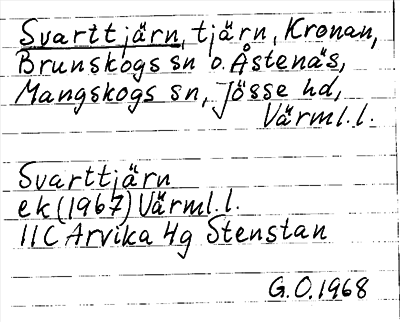 Svarttjärn, tjärn, Kronan,
Brunskogs sn o. Åstenäs,
Mangskogs sn, Jösse hd,
Värml.l.
Svarttjärn
ek (1967) Värml.l.
11C Arvika 4g Stenstan
G.O. 1968